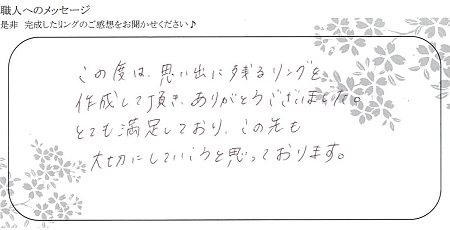 職人へのメッセージ
是非 完成したリングのご感想をお聞かせください♪
この度は、思い出に残るリングを
作成して頂き、ありがとうございました。
とても満足しており、この先も
大切にしていこうと思っております。